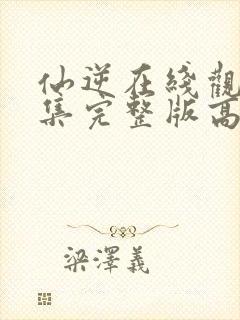 仙逆在綫觀
集完整版高
梁澤義